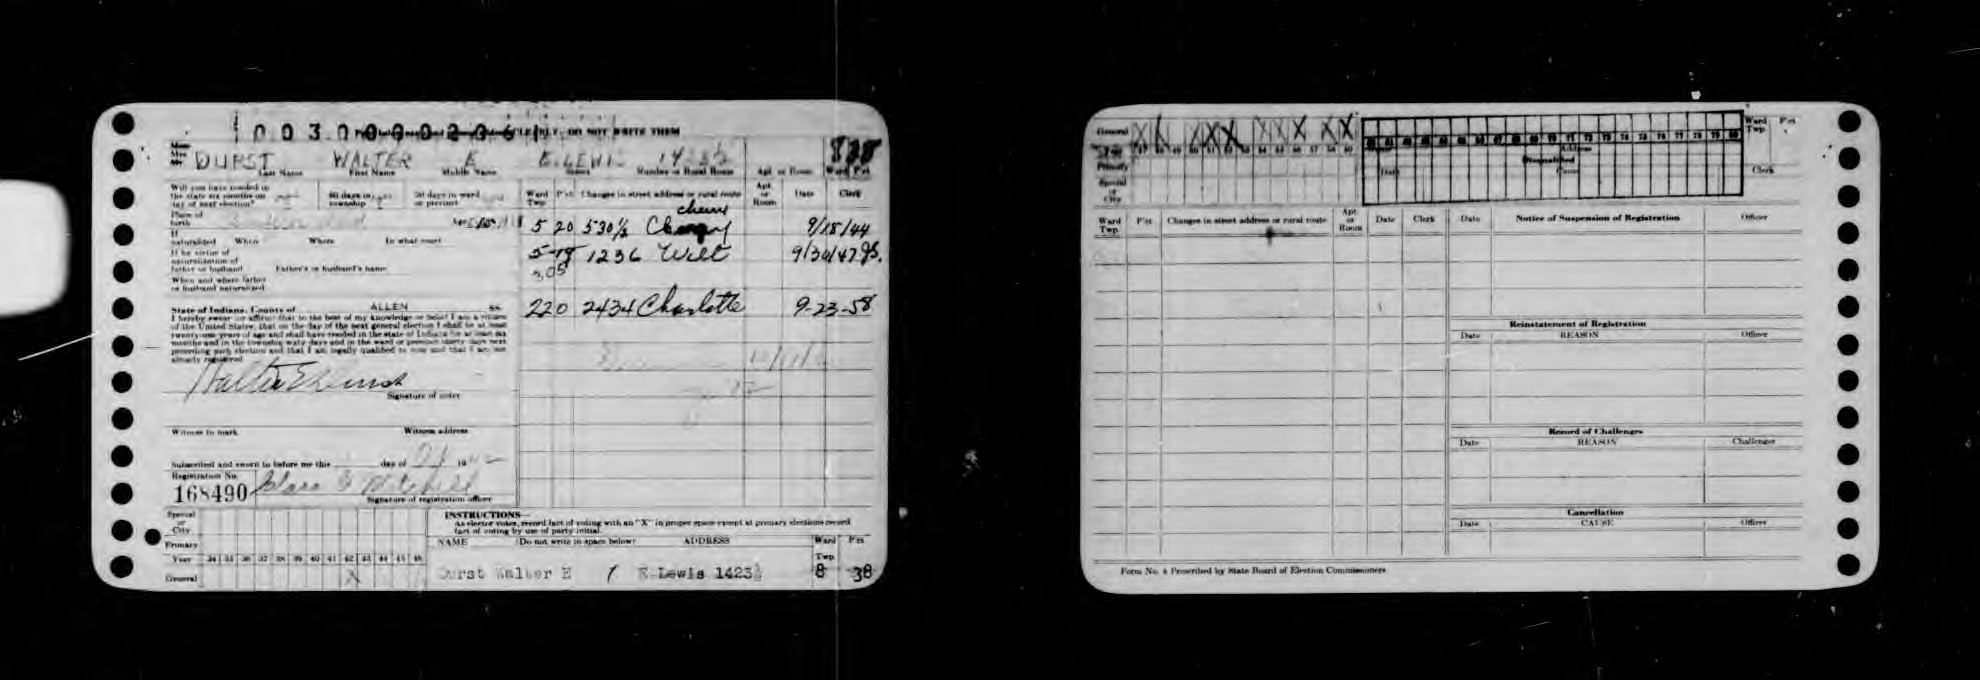 0030000206
CLEARLY, DO NOT WRITE THEM
Mrs. DURST WALTER E E. LEWIS 838
Last Name First Name Middle Name Street Number or Rural Route Apt. or Room Ward Pct
Will you have resided in
the state six months on
day of next election?
60 days in
township
30 days in ward
or precinct
Ward Twp. P'ct Changes in street address or rural route Apt. or Room Date Clerk
Place of
birth
If
naturalized When Where In what court
If by virtue of
naturalization of
father or husband Father's or husband's name
When and where father
or husband naturalized
cherry
5 20 530½ 9/18/44
5-18 1236 Well 9/30/47
305
220 2434 Charlotte 9-23-58
State of Indiana, County of ALLEN ss.
I hereby swear (or affirm) that to the best of my knowledge or belief I am a citizen
of the United States, that on the day of the next general election I shall be at least
twenty-one years of age and shall have resided in the state of Indiana for at least six
months and in the township sixty days and in the ward or precinct thirty days next
preceding such election and that I am legally qualified to vote and that I am not
already registered
Walter E Durst
Signature of voter
Witness to mark Witness address
Subscribed and sworn to before me this day of 19
Registration No.
168490
Signature of registration officer
Special or City
Primary
Year 34 35 36 37 38 39 40 41 42 43 44 45 46
General X
INSTRUCTIONS—
As elector votes, record fact of voting with an "X" in proper space except at primary elections record
fact of voting by use of party initial.
NAME (Do not write in space below) ADDRESS Ward Twp. P'ct
Durst Walter E E.Lewis 1423½ 8 38
General X X X X X X X X X X
47 48 49 50 51 52 53 54 55 56 57 58 59
60 61 62 63 64 65 66 67 68 69 70 71 72 73 74 75 76 77 78 79 80
Primary
Special or City
Address
Disqualified
Date Cause
Ward Twp. P'ct
Clerk
Ward Twp. P'ct Changes in street address or rural route Apt. or Room Date Clerk
Date Notice of Suspension of Registration Officer
Reinstatement of Registration
Date REASON Officer
Record of Challenges
Date REASON Challenger
Cancellation
Date CAUSE Officer
Form No. 4 Prescribed by State Board of Election Commissioners